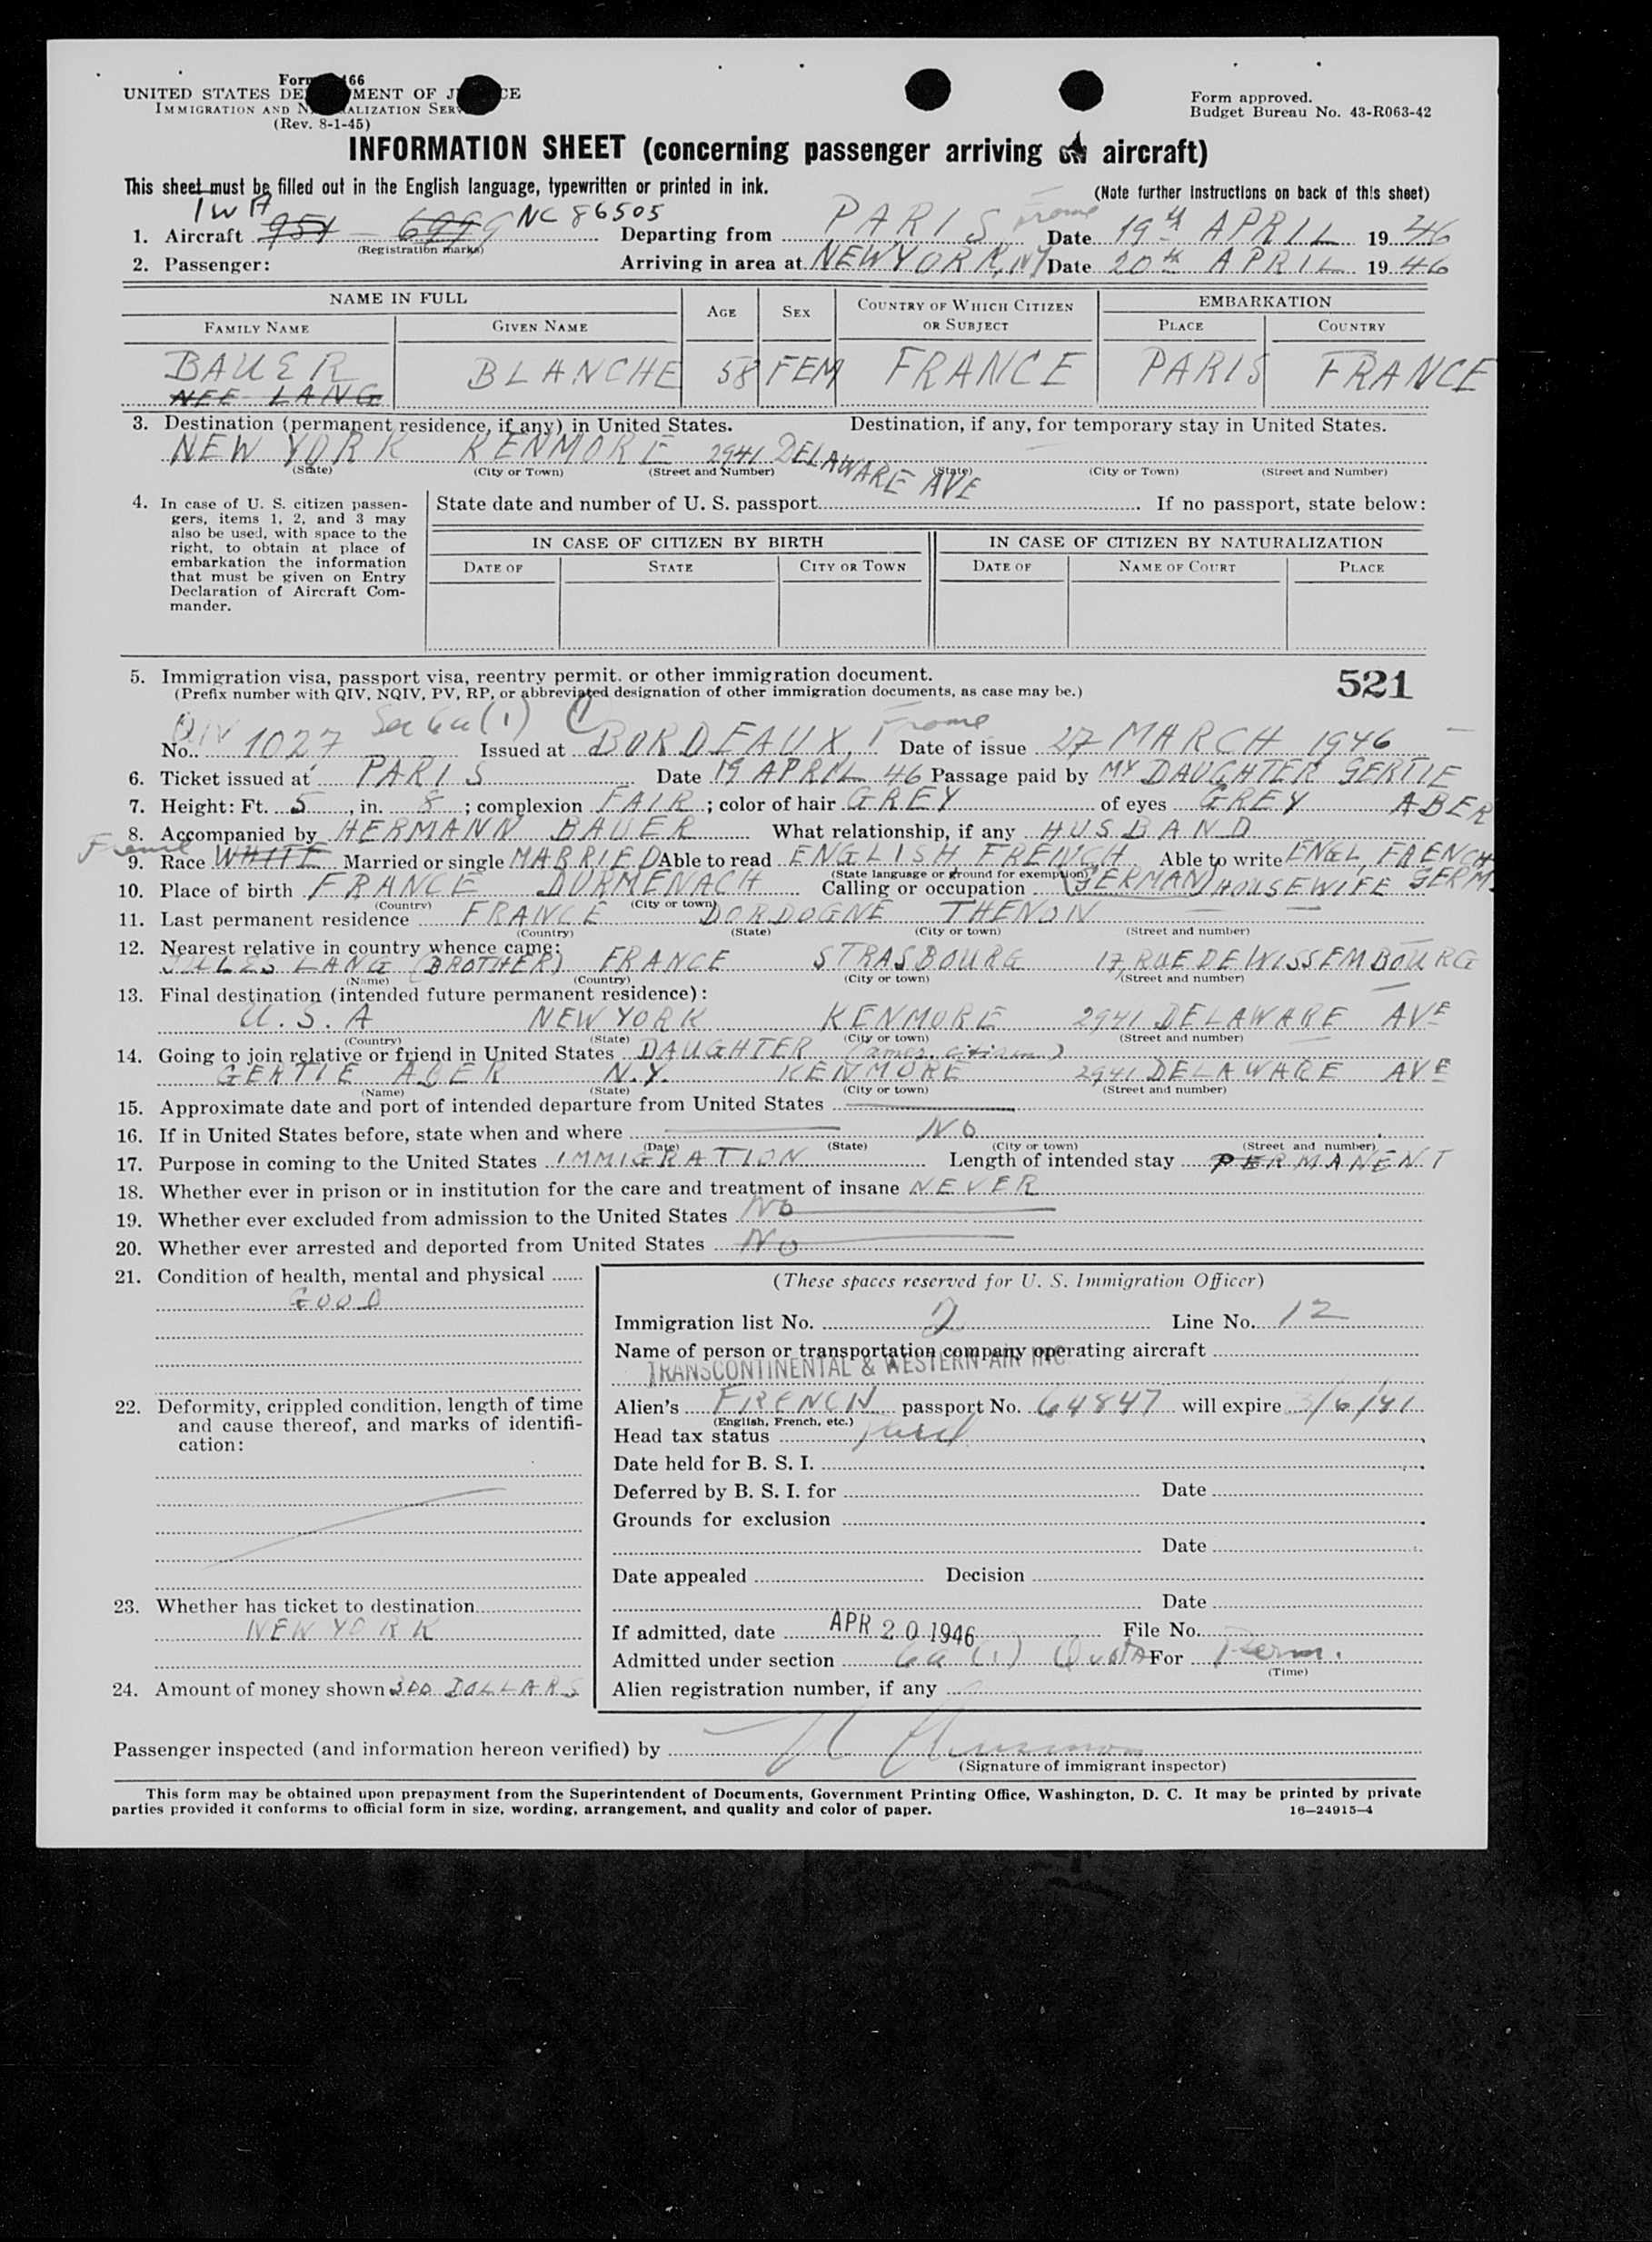 Form 66
UNITED STATES DE MENT OF J CE
IMMIGRATION AND N ALIZATION SERV
(Rev. 8-1-45)
Form approved.
Budget Bureau No. 43-R063-42
INFORMATION SHEET (concerning passenger arriving on aircraft)
This sheet must be filled out in the English language, typewritten or printed in ink.
(Note further instructions on back of this sheet)
TWA
1. Aircraft 954 — NC 86505 Departing from PARIS France Date 19th APRIL 1946
(Registration marks)
2. Passenger: Arriving in area at NEW YORK, NY Date 20th APRIL 1946
NAME IN FULL AGE SEX COUNTRY OF WHICH CITIZEN OR SUBJECT EMBARKATION
FAMILY NAME GIVEN NAME PLACE COUNTRY
BAUER BLANCHE 58 FEM FRANCE PARIS FRANCE
NEE LANG
3. Destination (permanent residence, if any) in United States. Destination, if any, for temporary stay in United States.
NEW YORK KENMORE 2941 DELAWARE AVE —
(State) (City or Town) (Street and Number) (State) (City or Town) (Street and Number)
4. In case of U. S. citizen passengers, items 1, 2, and 3 may also be used, with space to the right, to obtain at place of embarkation the information that must be given on Entry Declaration of Aircraft Commander.
State date and number of U. S. passport. If no passport, state below:
IN CASE OF CITIZEN BY BIRTH IN CASE OF CITIZEN BY NATURALIZATION
DATE OF STATE CITY OR TOWN DATE OF NAME OF COURT PLACE
5. Immigration visa, passport visa, reentry permit, or other immigration document. 521
(Prefix number with QIV, NQIV, PV, RP, or abbreviated designation of other immigration documents, as case may be.)
QIV Sec 6a(1) France
No. 1027 Issued at BORDEAUX, Date of issue 27 MARCH 1946
6. Ticket issued at PARIS Date 19 APRIL 46 Passage paid by MY DAUGHTER GERTIE ABER
7. Height: Ft. 5, in. 8; complexion FAIR; color of hair GREY of eyes GREY
8. Accompanied by HERMANN BAUER What relationship, if any HUSBAND
9. Race WHITE Married or single MARRIED Able to read ENGLISH FRENCH (GERMAN) Able to write ENGL, FRENCH GERM.
(State language or ground for exemption)
10. Place of birth FRANCE DURMENACH Calling or occupation HOUSEWIFE
(Country) (City or town)
11. Last permanent residence FRANCE DORDOGNE THENON —
(Country) (State) (City or town) (Street and number)
12. Nearest relative in country whence came:
JULES LANG (BROTHER) FRANCE STRASBOURG 17, RUE DE WISSEMBOURG
(Name) (Country) (City or town) (Street and number)
13. Final destination (intended future permanent residence):
U.S.A NEW YORK KENMORE 2941 DELAWARE AVE
(Country) (State) (City or town) (Street and number)
14. Going to join relative or friend in United States DAUGHTER (amer. citizen)
GERTIE ABER N.Y. KENMORE 2941 DELAWARE AVE
(Name) (State) (City or town) (Street and number)
15. Approximate date and port of intended departure from United States —
16. If in United States before, state when and where — No
(Date) (State) (City or town) (Street and number)
17. Purpose in coming to the United States IMMIGRATION Length of intended stay PERMANENT
18. Whether ever in prison or in institution for the care and treatment of insane NEVER
19. Whether ever excluded from admission to the United States No
20. Whether ever arrested and deported from United States No
21. Condition of health, mental and physical
GOOD
22. Deformity, crippled condition, length of time and cause thereof, and marks of identification:
23. Whether has ticket to destination
NEW YORK
24. Amount of money shown 300 DOLLARS
(These spaces reserved for U. S. Immigration Officer)
Immigration list No. 2 Line No. 12
Name of person or transportation company operating aircraft
TRANSCONTINENTAL & WESTERN AIR INC
Alien's FRENCH passport No. 64847 will expire 3/6/41
(English, French, etc.)
Head tax status Paid
Date held for B. S. I.
Deferred by B. S. I. for Date
Grounds for exclusion
Date
Date appealed Decision
Date
If admitted, date APR 20 1946 File No.
Admitted under section 6a (1) Quota For Perm.
(Time)
Alien registration number, if any
Passenger inspected (and information hereon verified) by
(Signature of immigrant inspector)
This form may be obtained upon prepayment from the Superintendent of Documents, Government Printing Office, Washington, D. C. It may be printed by private
parties provided it conforms to official form in size, wording, arrangement, and quality and color of paper. 16—24915-4